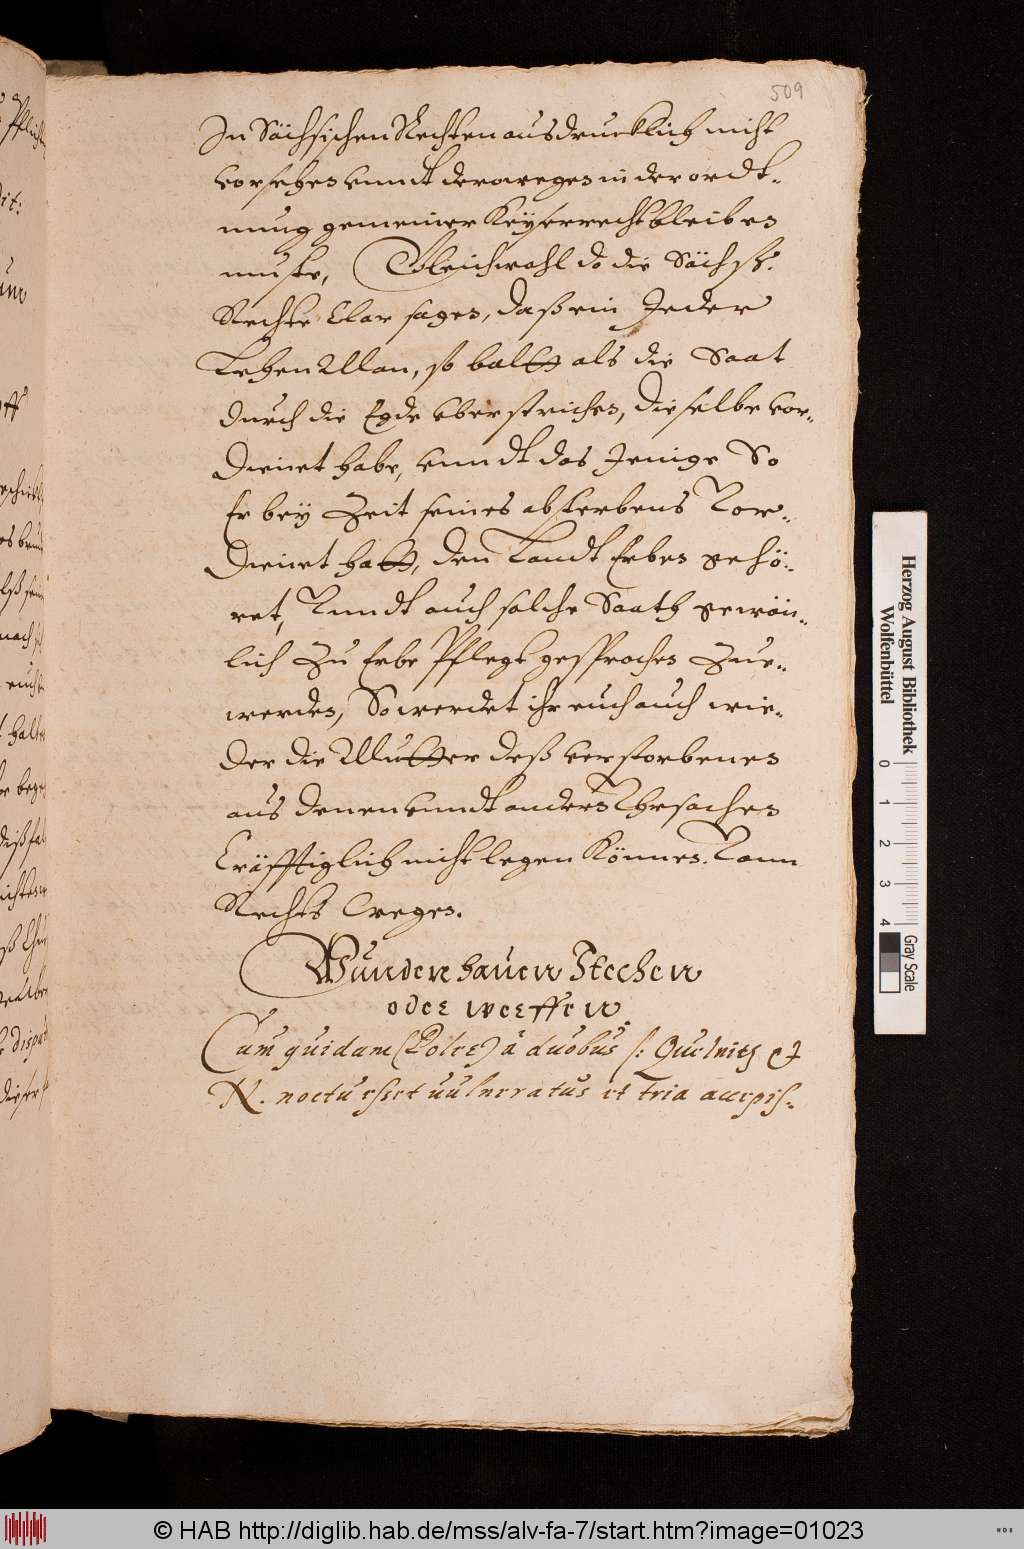 509
In Sächsischen Rechten ausdrucklich nicht
vorsehen vnndt derowegen in der ordt-
nung gemeiner Keyserrecht bleiben
muste, Gleichwohl do die Sächsß.
Rechte Clar sagen, daß ein Jeder
Lehen Man, so baltt als die Saat
durch die Egde vberstrichen, dieselbe vor-
dienet habe, vnndt das Jenige So
Er bey Zeit seines absterbens Vor-
dienet hatt, den Landt Erben gehö-
ret, Vnndt auch solche Saath gewön-
lich Zu Erbe Pflegt gesprochen Zue-
werden, So werdet ihr euch auch wie-
der die Mutter deß verstorbenen
aus denen vnndt andern Vhrsachen
Cräfftiglich nicht legen Können. Vonn
Rechts Wegen.
Wunden hauen Stechen
oder werffen
Cum quidam (Polre) à duobus /: Quelnitz et
N. noctu esset uulneratus et tria accepis-
Herzog August Bibliothek
Wolfenbüttel
0 1 2 3 4
Gray Scale
© HAB http://diglib.hab.de/mss/alv-fa-7/start.htm?image=01023